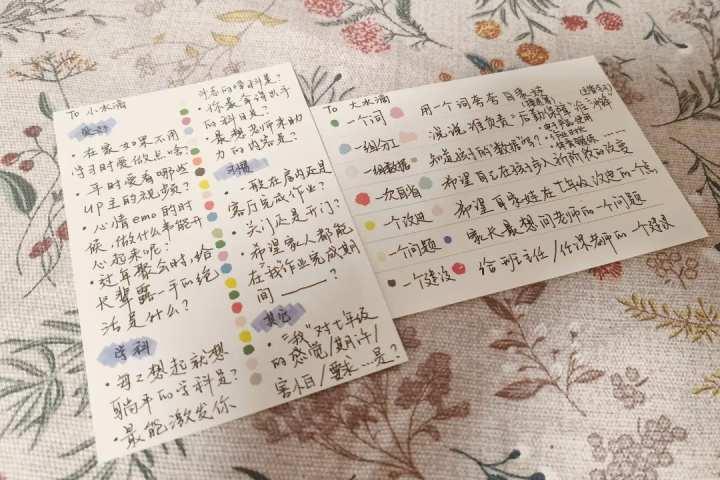 To 小水滴
在家如果不用
学习时爱做点啥?
平时爱看哪些
up主的视频?
心情emo的时
候,做什么都能开
心起来呢?
过年聚会时,给
长辈露一手的绝
活是什么?
学科
每次想起就想
躺平的学科是?
最能激发你
斗志的学科是?
你最拿得出手
的科目是?
最想老师来助
力的内容是?
习惯
一般在房内还是
客厅完成作业?
关门还是开门?
希望家人都能
在我作业完成期
间______?
其它
“我”对七年级
的感觉/期许/
害怕/要求…是?
To 大水滴
一个词 用一个词夸夸自家孩
一组分工 说说谁负责“后勤保障”谁
一组数据 知道孩子的数据吗?
一次自省 希望自己在孩子步入初阶的改变
一个改进 希望自家娃在七年级改进的一个点
一个问题 家长最想问老师的一个问题
一个建议 给班主任/任课老师的一个建议